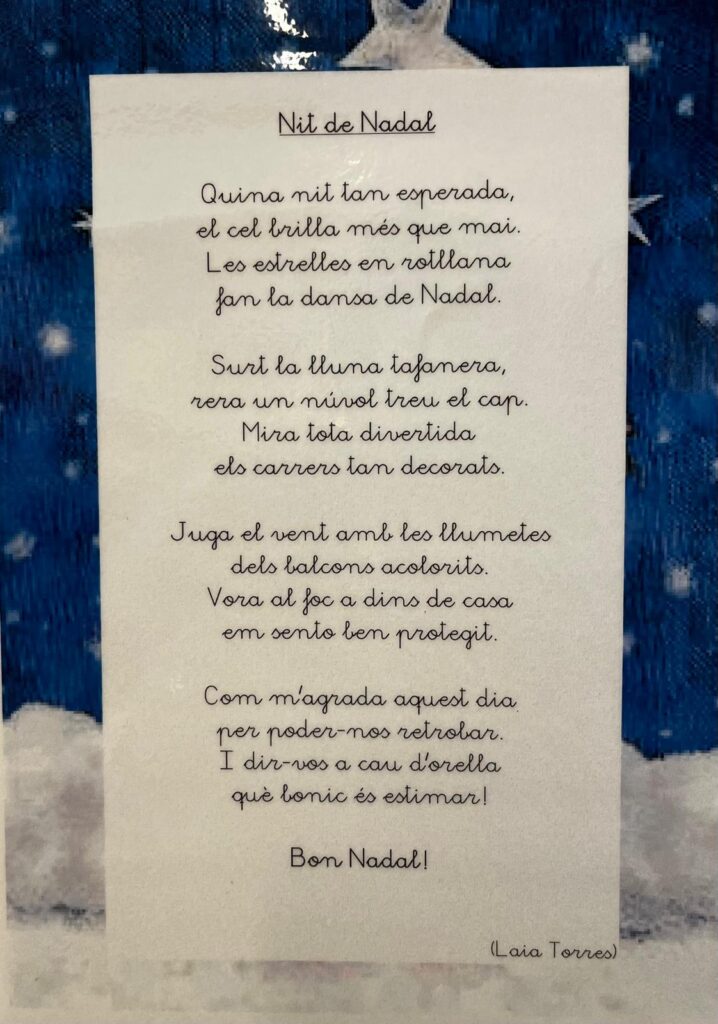 Nit de Nadal
Quina nit tan esperada,
el cel brilla més que mai.
Les estrelles en rotllana
fan la dansa de Nadal.
Surt la lluna tafanera,
rera un núvol treu el cap.
Mira tota divertida
els carrers tan decorats.
Juga el vent amb les llumetes
dels balcons acolorits.
Vora al foc a dins de casa
em sento ben protegit.
Com m'agrada aquest dia
per poder-nos retrobar.
I dir-vos a cau d'orella
què bonic és estimar!
Bon Nadal!
(Laia Torres)